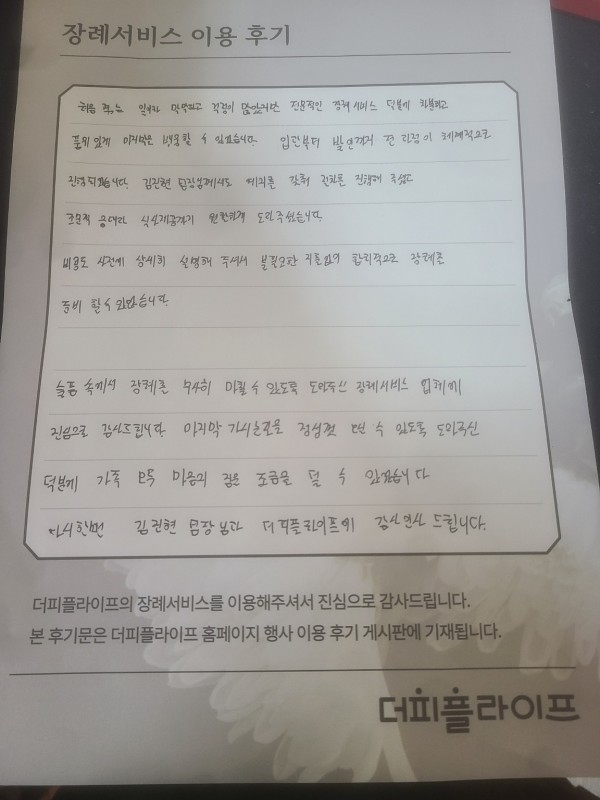 장례서비스 이용 후기
처음 겪는 일이라 막막하고 걱정이 많았지만 전문적인 장례서비스 덕분에 차분하고
품위 있게 마지막을 배웅할 수 있었습니다. 입관부터 발인까지 전 과정이 체계적으로
진행되었습니다. 김진현 팀장님께서도 예의를 갖춰 진행해 주셨고
조문객 응대나 식사제공까지 완벽하게 도와주셨습니다.
비용도 사전에 상세히 설명해 주셔서 불필요한 지출없이 합리적으로 장례를
준비 할 수 있었습니다.
슬픔 속에서 장례를 무사히 마칠 수 있도록 도와주신 장례서비스 업체에
진심으로 감사드립니다. 마지막 가시는길을 정성껏 수 있도록 도와주신
덕분에 가족 모두 마음의 짐을 조금을 덜 수 있었습니다
다시한번 김진현 팀장님과 더피플라이프에 감사인사 드립니다.
더피플라이프의 장례서비스를 이용해주셔서 진심으로 감사드립니다.
본 후기문은 더피플라이프 홈페이지 행사 이용 후기 게시판에 기재됩니다.
더피플라이프